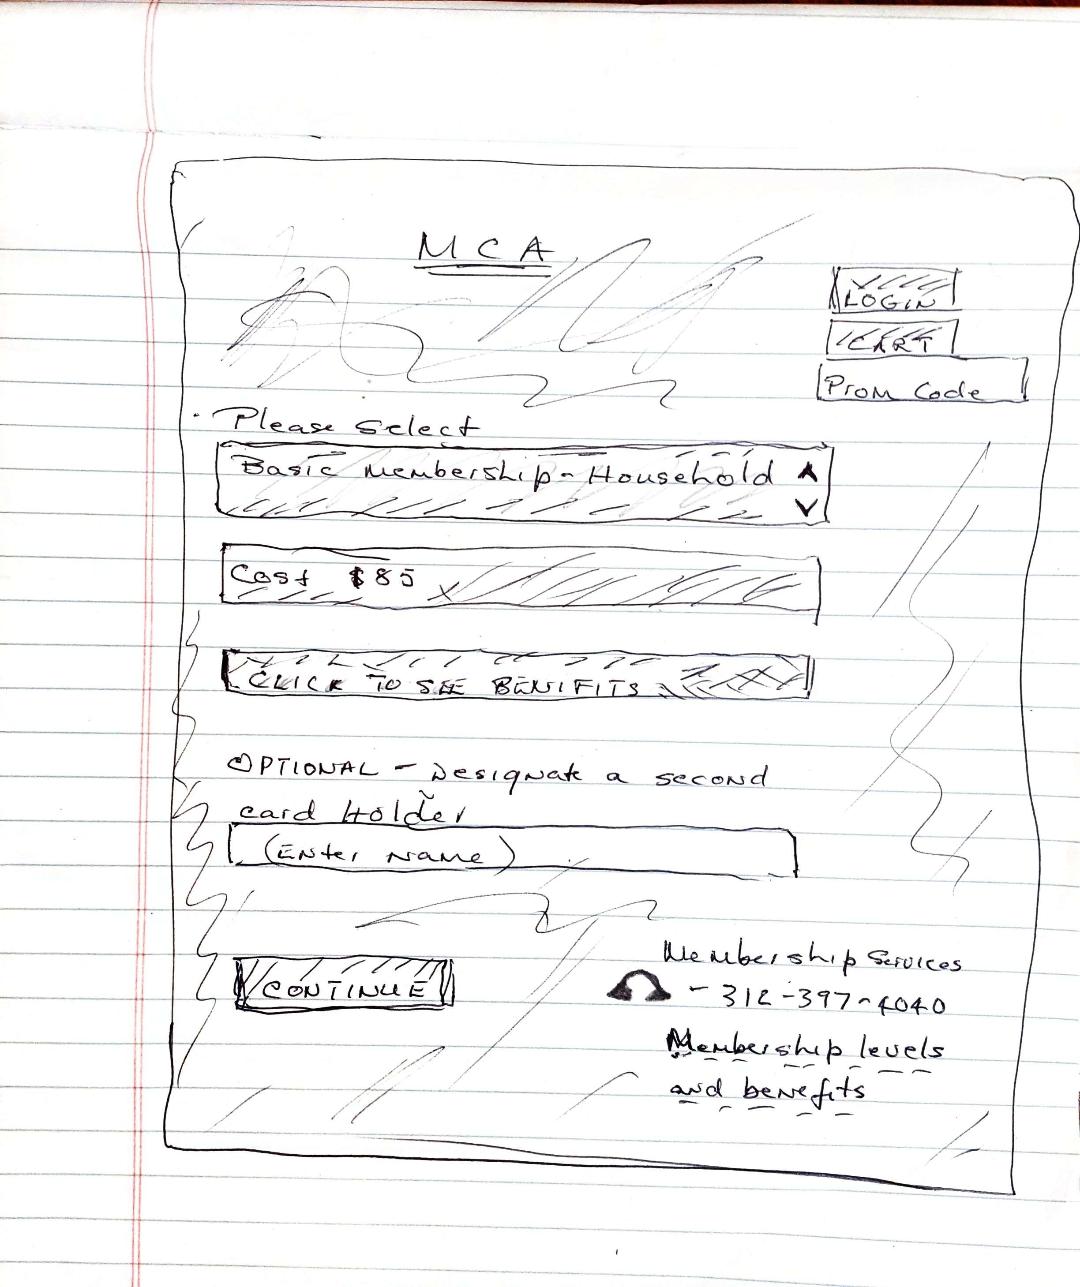 MCA
LOGIN
CART
Prom Code
Please Select
Basic Membership - Household
Cost $85
CLICK TO SEE BENIFITS
OPTIONAL - Designate a second
card Holder
(Enter name)
CONTINUE
Membership Services
- 312-397-4040
Membership levels
and benefits